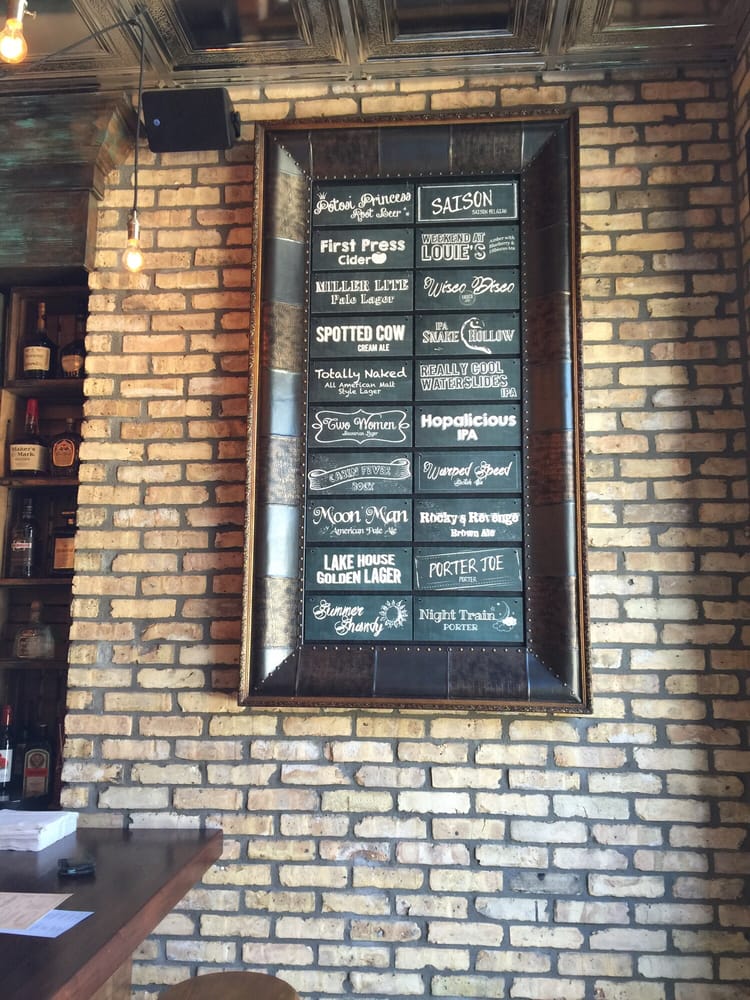 Potosi Princess
Root Beer
First Press
Cider
MILLER LITE
Pale Lager
SPOTTED COW
CREAM ALE
Totally Naked
All American Malt
Style Lager
Two Women
Bavarian Lager
CABIN FEVER
BOCK
Moon Man
American Pale Ale
LAKE HOUSE
GOLDEN LAGER
Summer
Shandy
SAISON
SAISON BELGIAN
WEEKEND AT
LOUIE'S
Amber with
Blueberry &
Hibiscus tea
Wisco Disco
IPA
SNAKE HOLLOW
REALLY COOL
WATERSLIDES
IPA
Hopalicious
IPA
Warped Speed
Scotch Ale
Rocky's Revenge
Brown Ale
PORTER JOE
PORTER
Night Train
PORTER
Maker's
Mark